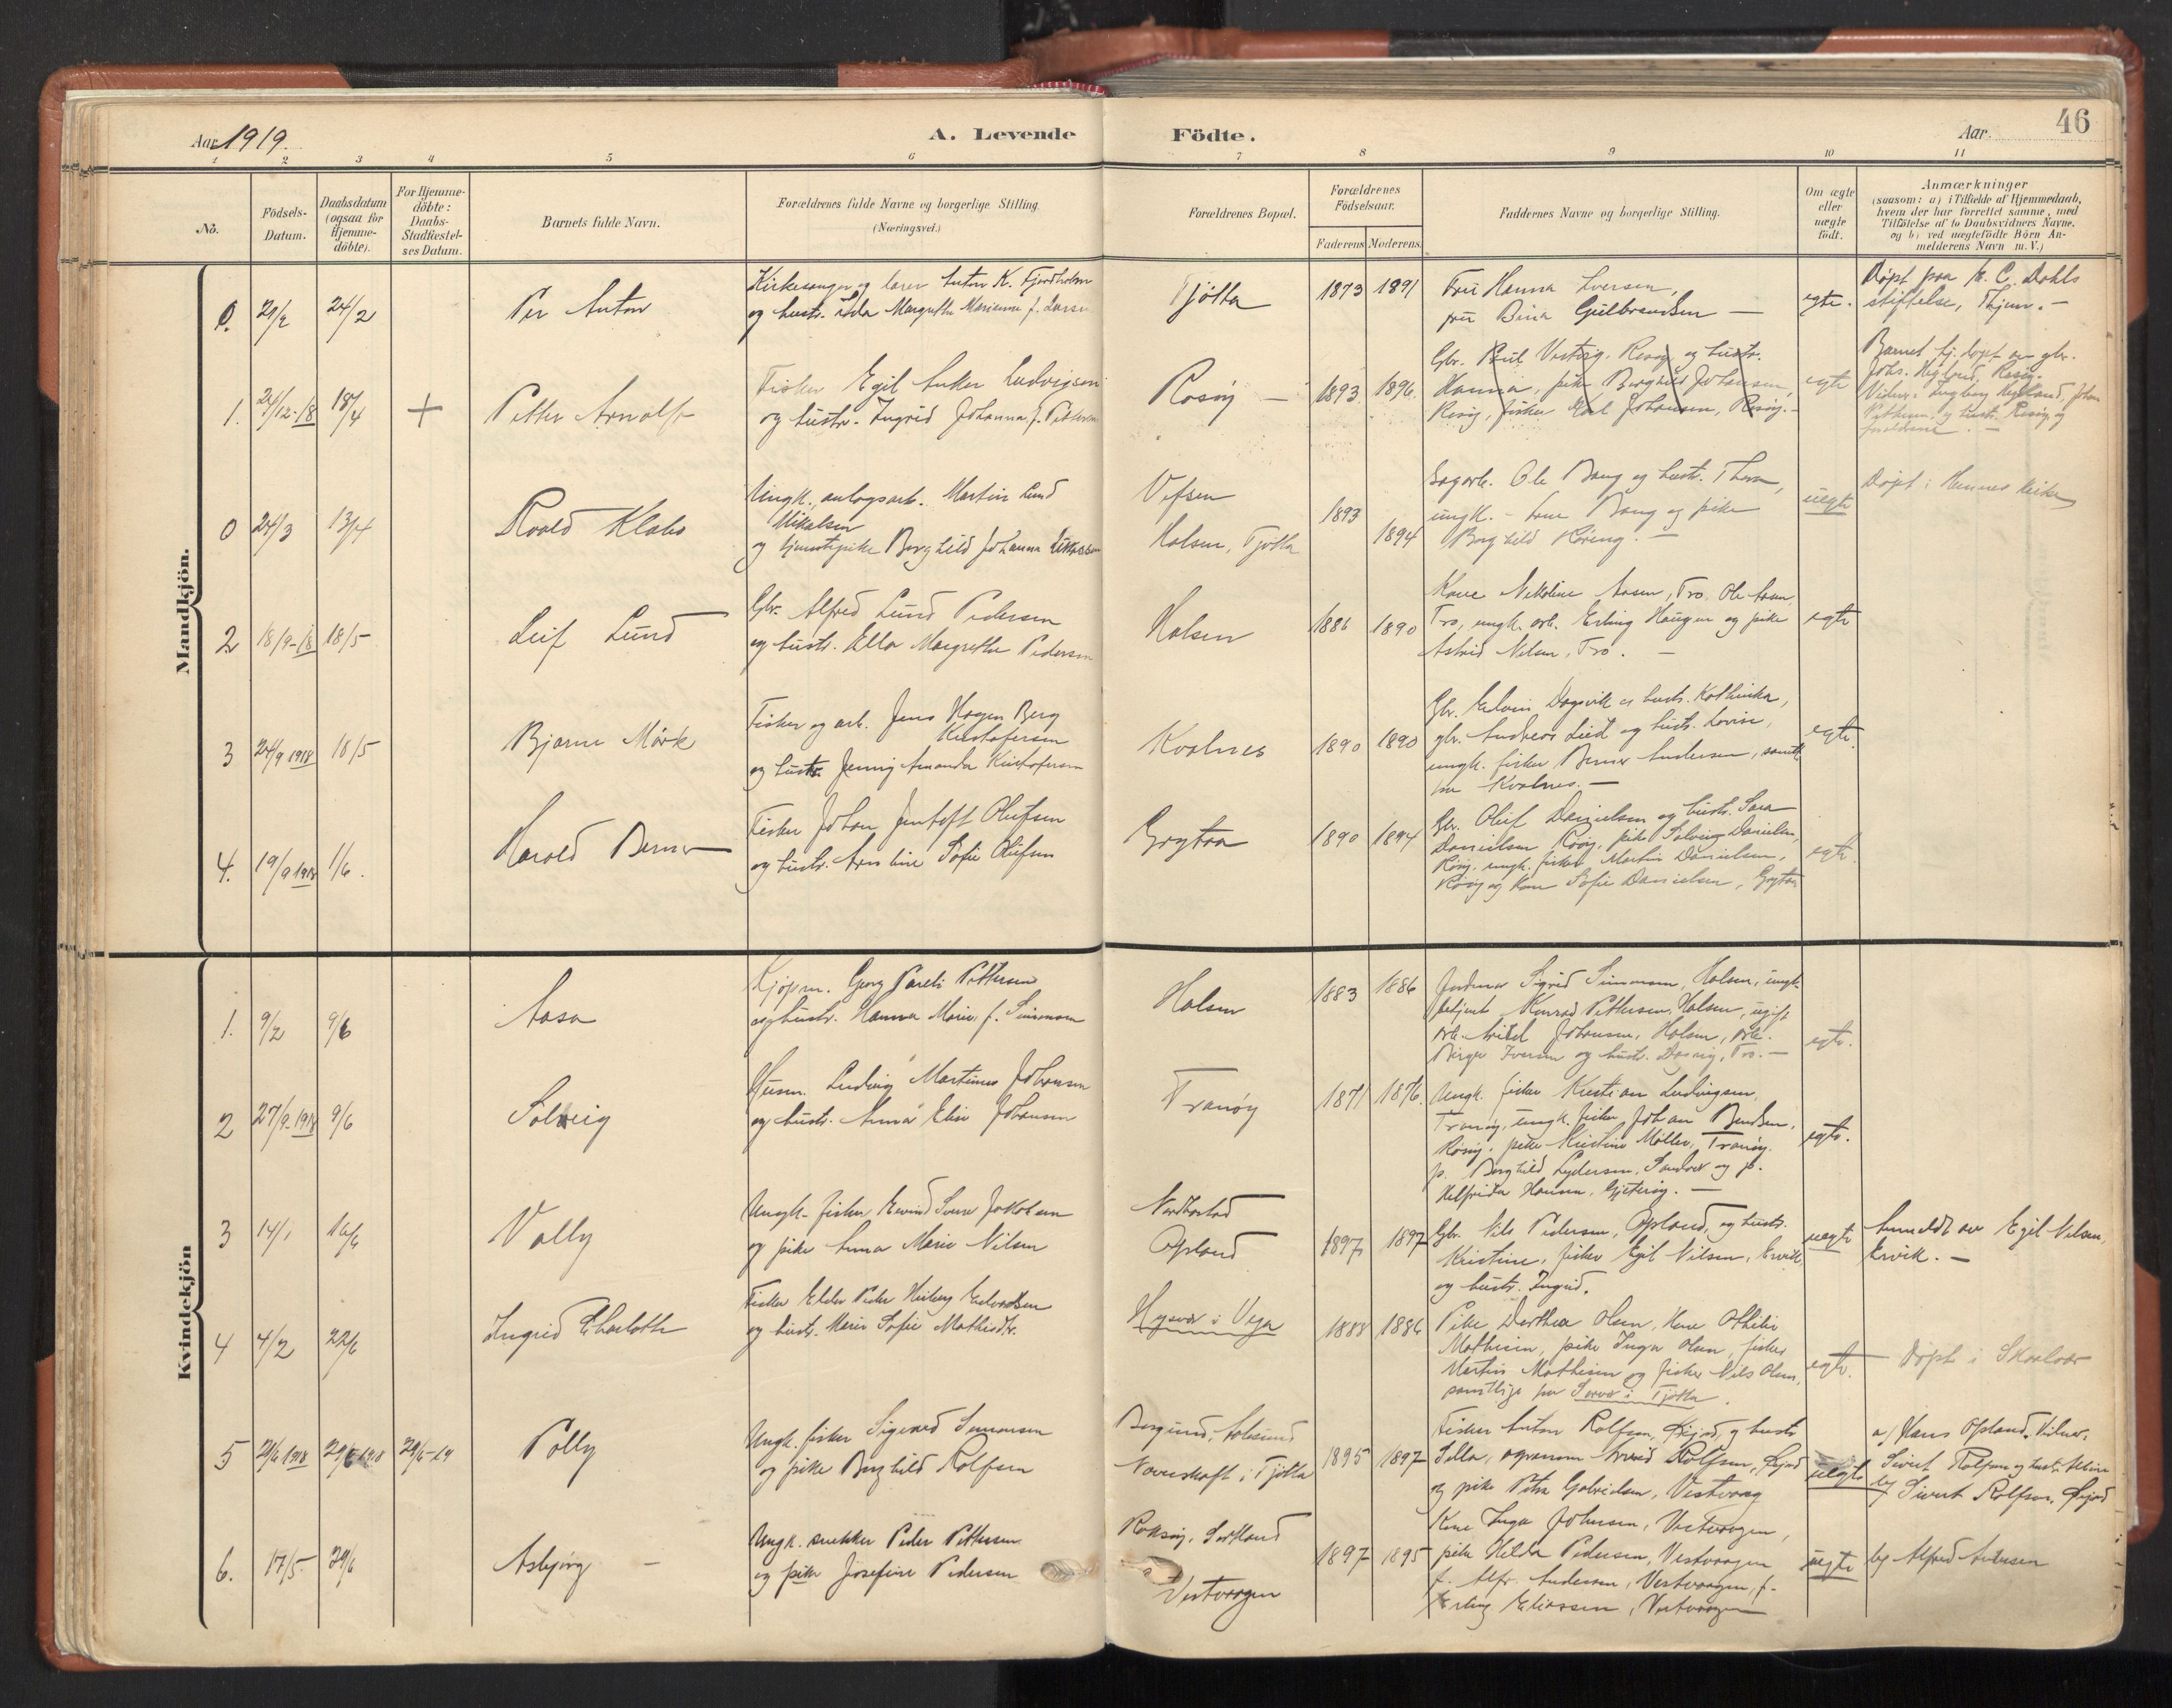 Aar 1919.
A. Levende Födte.
Aar.
46
1 2 3 4 5 6 7 8 9 10 11
No.
Födsels-Datum.
Daabsdatum (ogsaa for Hjemmedöbte).
For Hjemmedöbte: Daabs-Stadfæstelses Datum.
Barnets fulde Navn.
Forældrenes fulde Navne og borgerlige Stilling.
(Næringsvei.)
Forældrenes Bopæl.
Forældrenes Födselsaar.
Faderens Moderens
Faddernes Navne og borgerlige Stilling.
Om ægte eller uægte födt.
Anmærkninger
(saasom: a) i Tilfælde af Hjemmedaab, hvem der har forrettet samme, med Tilföielse af to Daabsvidners Navne. og b) ved uægtefödte Börn Anmelderens Navn m. V.)
Mandkjön.
0. 24/2
Per Anton
Kirkesanger og lærer Anton K. Fjordholm
og hustr. Margrethe Marianne f. Larsen
Tjøtta
1873 1891
Fru Hanna Iversen,
fru Bina Gulbrandsen —
egte.
Døpt paa K. C. Dahls
stiftelse, Thjem. —
1. 24/12-18 18/4 +
Petter Arnolf
Fisker Egil Anker Ludvigsen
og hustr. Ingrid Johanna f. Pettersen
Rosøy —
1893 1896.
Gbr. Vestvig. Rosøy og hustr.
Hanna, pike Borghild Johansen,
Rosøy, fisker Karl Johansen, Rosøy. —
egte
Barnet hj. døpt av gbr.
og hustr. Rosøy og
foreldrene. —
0 24/3 13/4
Roald Klabo
Ungk., anlegsarb. Martin Lund
Mikalsen
og hjemmepike Borghild Johanna
Vefsen
Halsen, Tjøtta
1893
1894
Sagarb. Ole Bang og hustr. Thora,
ungk. Bang og pike
Borghild Røring. —
uegte
Døpt i Hennes kirke
2 18/9-18 18/5
Leif Lund
Gbr. Alfred Lund Pedersen
og hustr. Ella Margrethe Pedersen
Halsen
1886 1890
Kone Nikoline Aasen, Tro, Ole Aasen,
Tro, ungk. arb. Erling Haugen og pike
Astrid Nilsen, Tro. —
egte
3 24/9 1918 18/5
Bjarne Mörk
Fisker og arb. Jens Hagen Berg
Kristofersen
og hustr. Jenny Amanda Kristofersen
Kvalnes
1890 1890
Gbr. Edvin Dagsvik og hustr. Kathinka,
gbr. Andreas Lied og hustr. Lovise,
ungk. fisker Berner Andersen, samtl.
fra Kvalnes. —
egte.
4. 19/9 1918 1/6.
Harald Berner
Fisker Johan Jentoft Olufsen
og hustr. Arnline Sofie Olufsen
Grytaa
1890 1894
Gbr. Oluf Danielsen og hustr. Sara
Danielsen Rosøy, pike Solveig Danielsen,
Rosøy, ungk. fisker Martin Danielsen,
Rosøy og kone Sofie Danielsen, Grytaa
egte.
Kvindekjön
1. 9/2 9/6
Aasa
Kjøpm. Georg Pareli Pettersen
og hustr. Hanna Marie f. Simonsen
Halsen
1883 1886
Jordmor Sigrid Simonsen, Halsen, ungk.
betjent Konrad Pettersen, Halsen, ugift
Johansen, Halsen, arb.
Birger Iversen og hustr. Tro. —
egte.
2 27/9-1918 9/6
Solveig
Husm. Ludvig Martinus Johansen
og hustr. Anna Elise Johansen
Tranøy
1871 1876.
Ungk. fisker Kristian Ludvigsen,
Tranøy, ungk. fisker Johan Bendsen,
Rosøy, pike Kristine Møller, Tranøy.
p. Borghild Lydersen, Sandvær og p.
Helfrida Hansen, Gjeterøy. —
egte.
3 14/1 16/6
Vally
Ungk. fisker Eivind Sverre Jakobsen
og pike Anna Marie Nilsen
Nordbostad
Opland
1897 1897
Gbr. Nils Pedersen, Opland, og hustr.
Kristine, fisker Egil Nilsen, Ervik
og hustr. Ingrid.
uegte
Anmeldt av Egil Nilsen,
Ervik. —
4 4/2 22/6
Ingrid Charlotte
Fisker Elder Peder Hilberg Edvardsen
og hustr. Marie Sofie Mathisdtr.
Hysvær i Vega
1888 1886
Pike Dorthea Olsen, kone Othilie
Mathisen, pike Inga Olsen, fisker
Martin Mathisen og fisker Nils Olsen,
samtlige fra Sørvær i Tjøtta.
egte.
Døpt i Skaalvær
5 21/6 1918 29/6 1918 29/6-19
Polly
Ungk. fisker Sigvard Simonsen
og pike Borghild Rolfsen
Borgund, Aalesund
Naverskaft i Tjøtta
1895 1897
Fisker Anton Rolfsen, og hustr.
Silla, Rolfsen,
og pike Petra Gabrielsen, Vestvaag
uegte
a/ Hans Opland. Vidner.
Sivert Rolfsen og hustr.
b/ Sivert Rolfsen,
6. 17/5 29/6
Asbjørg —
Ungk. snekker Peder Pettersen
og pike Josefine Pedersen
Roksøy, Sortland
Vestvaagen
1897 1895
Kone Inga Johnsen, Vestvaagen,
pike Hilda Pedersen, Vestvaagen
f. Alfr. Andersen, Vestvaagen, f.
Erling Eliassen, Vestvaagen
uegte
b/ Alfred Andersen